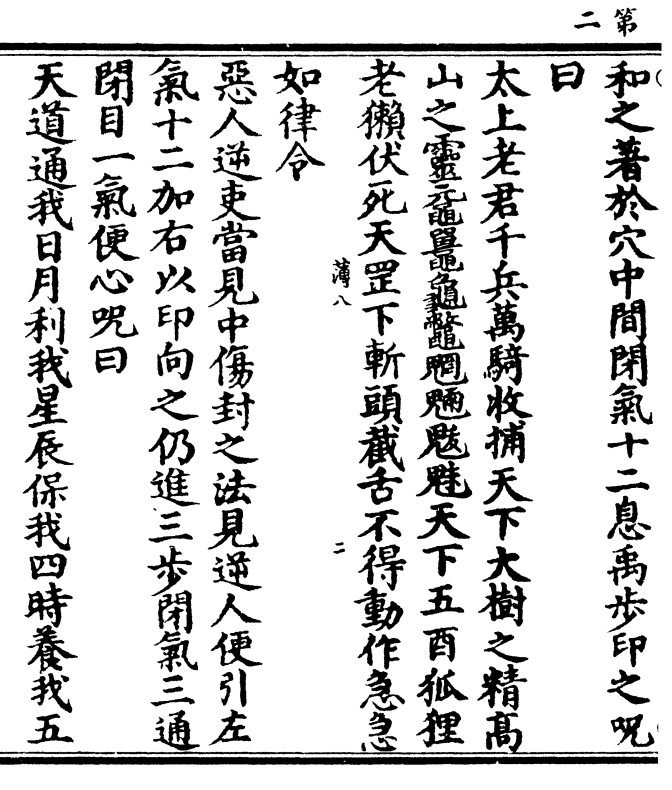 第二
和之著於穴中間閉氣十二息禹步印之呪
曰
太上老君千兵萬騎收捕天下大樹之精高
山之靈黿鼉龜鱉魍魎魃魅天下五酉狐狸
老獺伏死天罡下斬頭截舌不得動作急急
薄八 二
如律令
惡人逆吏當見中傷封之法見逆人便引左
氣十二加右以印向之仍進三步閉氣三通
閉目一氣便心呪曰
天道通我日月利我星辰保我四時養我五